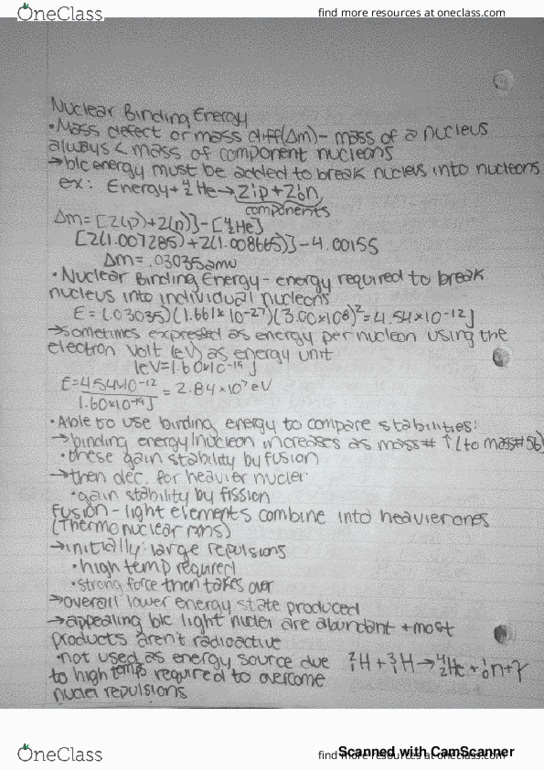 OneClass
find more resources at oneclass.com
Nuclear Binding Energy
•Mass defect or mass diff(Δm)- mass of a nucleus
always < mass of component nucleons
→b/c energy must be added to break nucleus into nucleons
ex: Energy + ⁴₂He → 2¹₁p + 2¹₀n
components
Δm = [2(p)+2(n)] - [⁴₂He]
[2(1.007285)+2(1.008665)] - 4.00155
Δm = .03035amu
•Nuclear Binding Energy - energy required to break
nucleus into individual nucleons
E = (.03035)(1.661×10⁻²⁷)(3.00×10⁸)² = 4.54×10⁻¹²J
→sometimes expressed as energy per nucleon using the
electron volt (eV) as energy unit
1eV = 1.60×10⁻¹⁹J
E = 4.54×10⁻¹² / 1.60×10⁻¹⁹J = 2.84×10⁷eV
•Able to use binding energy to compare stabilities:
→binding energy/nucleon increases as mass# ↑ (to mass# 56)
•these gain stability by fusion
→then dec. for heavier nuclei
•gain stability by fission
Fusion - light elements combine into heavier ones
(Thermonuclear rxns)
→initially: large repulsions
•high temp required
•strong force then takes over
→overall lower energy state produced
→appealing b/c light nuclei are abundant + most
products aren't radioactive
•not used as energy source due
to high temps required to overcome
nuclei repulsions
²₁H + ³₁H → ⁴₂He + ¹₀n + γ
OneClass
find more resources at oneclass.com
Scanned with CamScanner